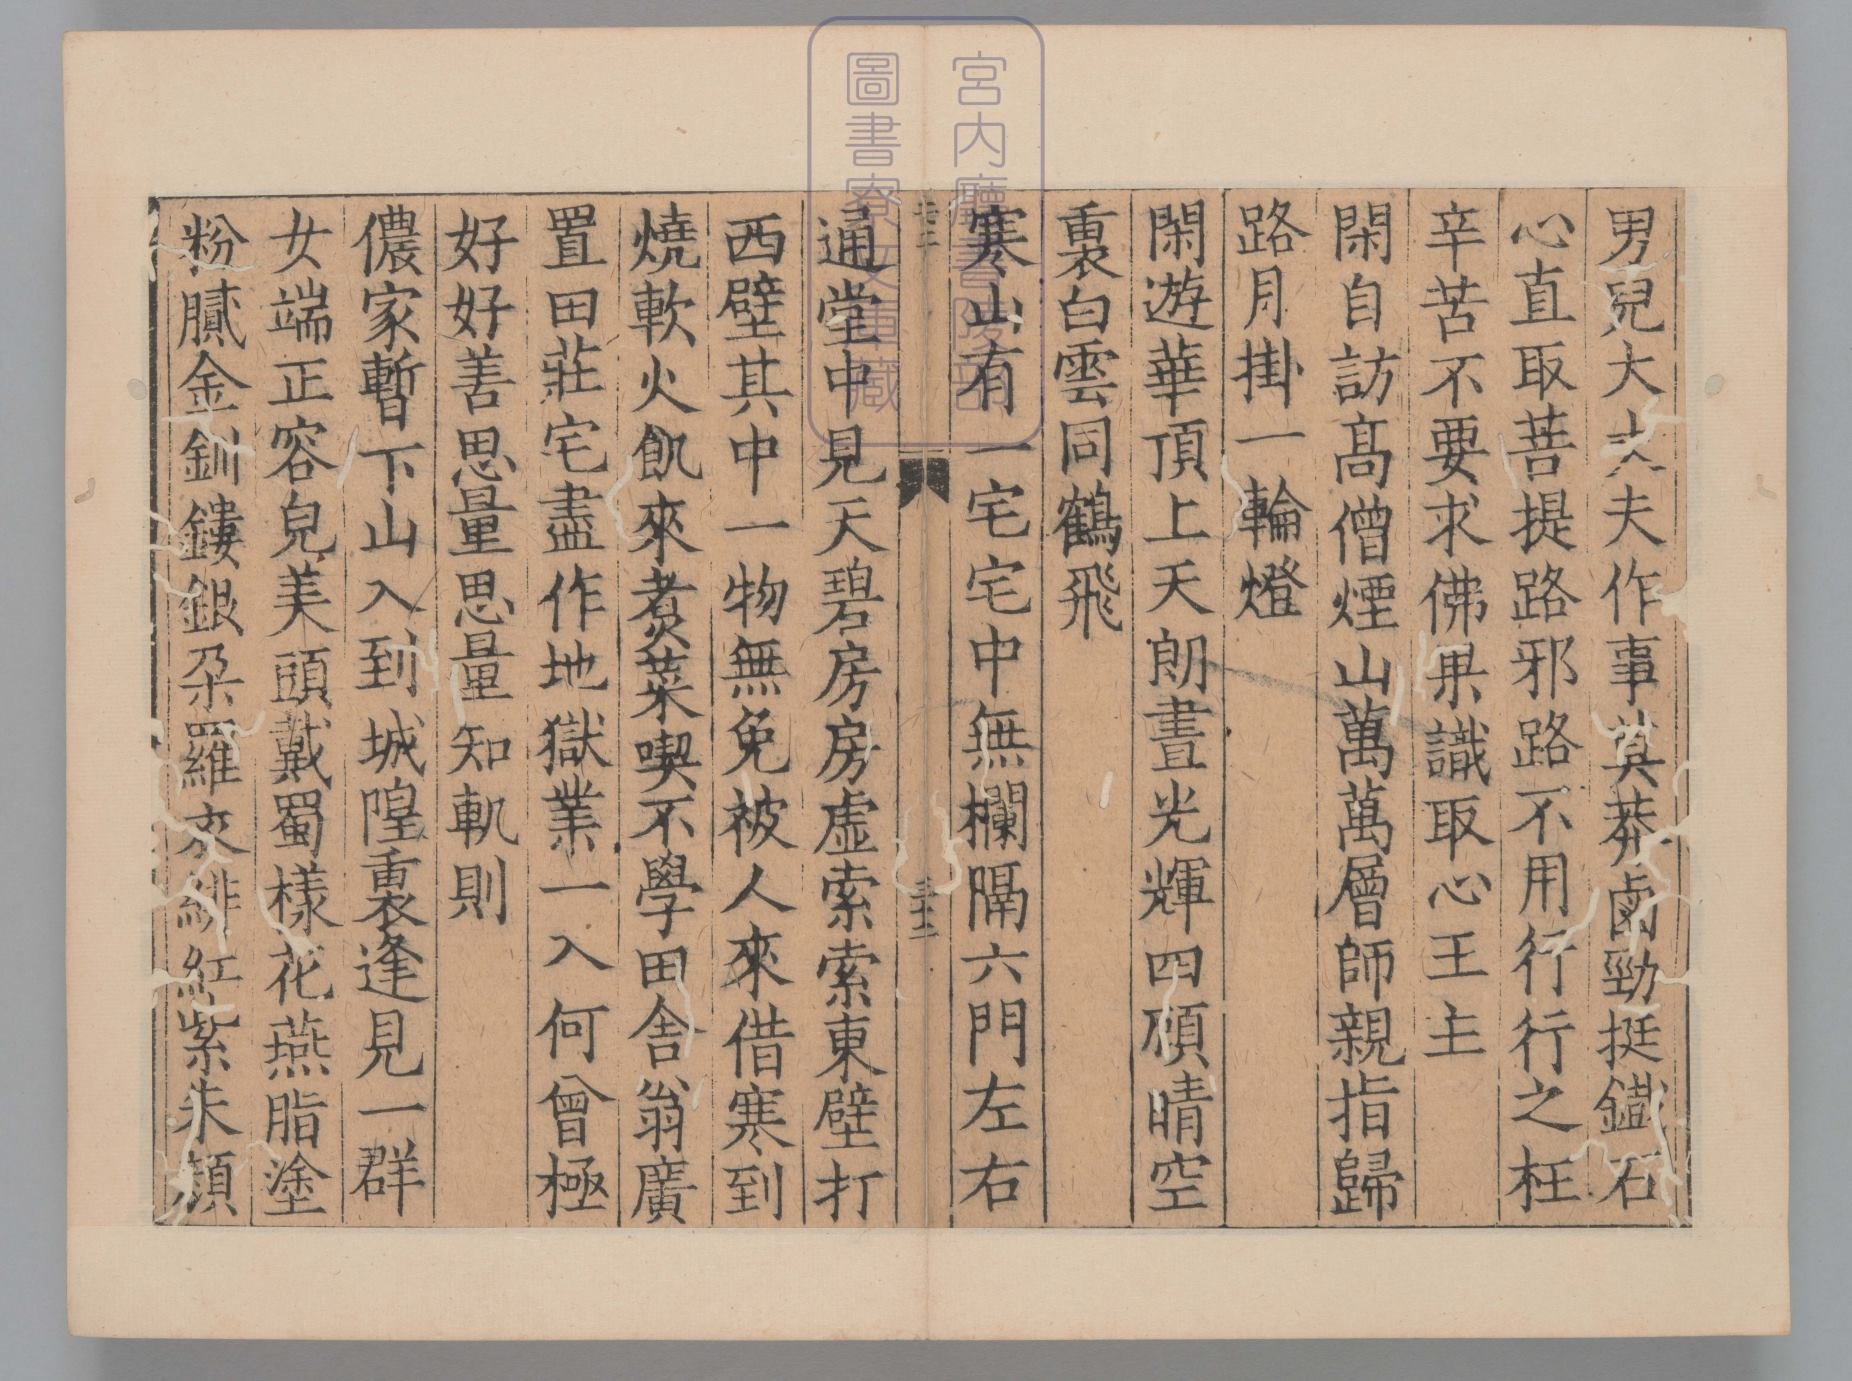 男兒大丈夫作事莫莽鹵勁挺鐵石
心直取菩提路邪路不用行行之枉
辛苦不要求佛果識取心王主
閑自訪高僧煙山萬萬層師親指歸
路月掛一輪燈
閑遊華頂上天朗晝光輝四顧晴空
裏白雲同鶴飛
寒山有一宅宅中無欄隔六門左右
通堂中見天碧房房虛索索東壁打
西壁其中一物無免被人來借寒到
燒軟火飢來煑菜喫不學田舍翁廣
置田莊宅盡作地獄業一入何曾極
好好善思量思量知軌則
儂家暫下山入到城隍裏逢見一群
女端正容皃美頭戴蜀樣花燕脂塗
粉膩金釧鏤銀朶羅衣緋紅紫朱顏
三十二
宮内廳書陵部
圖書寮文庫藏